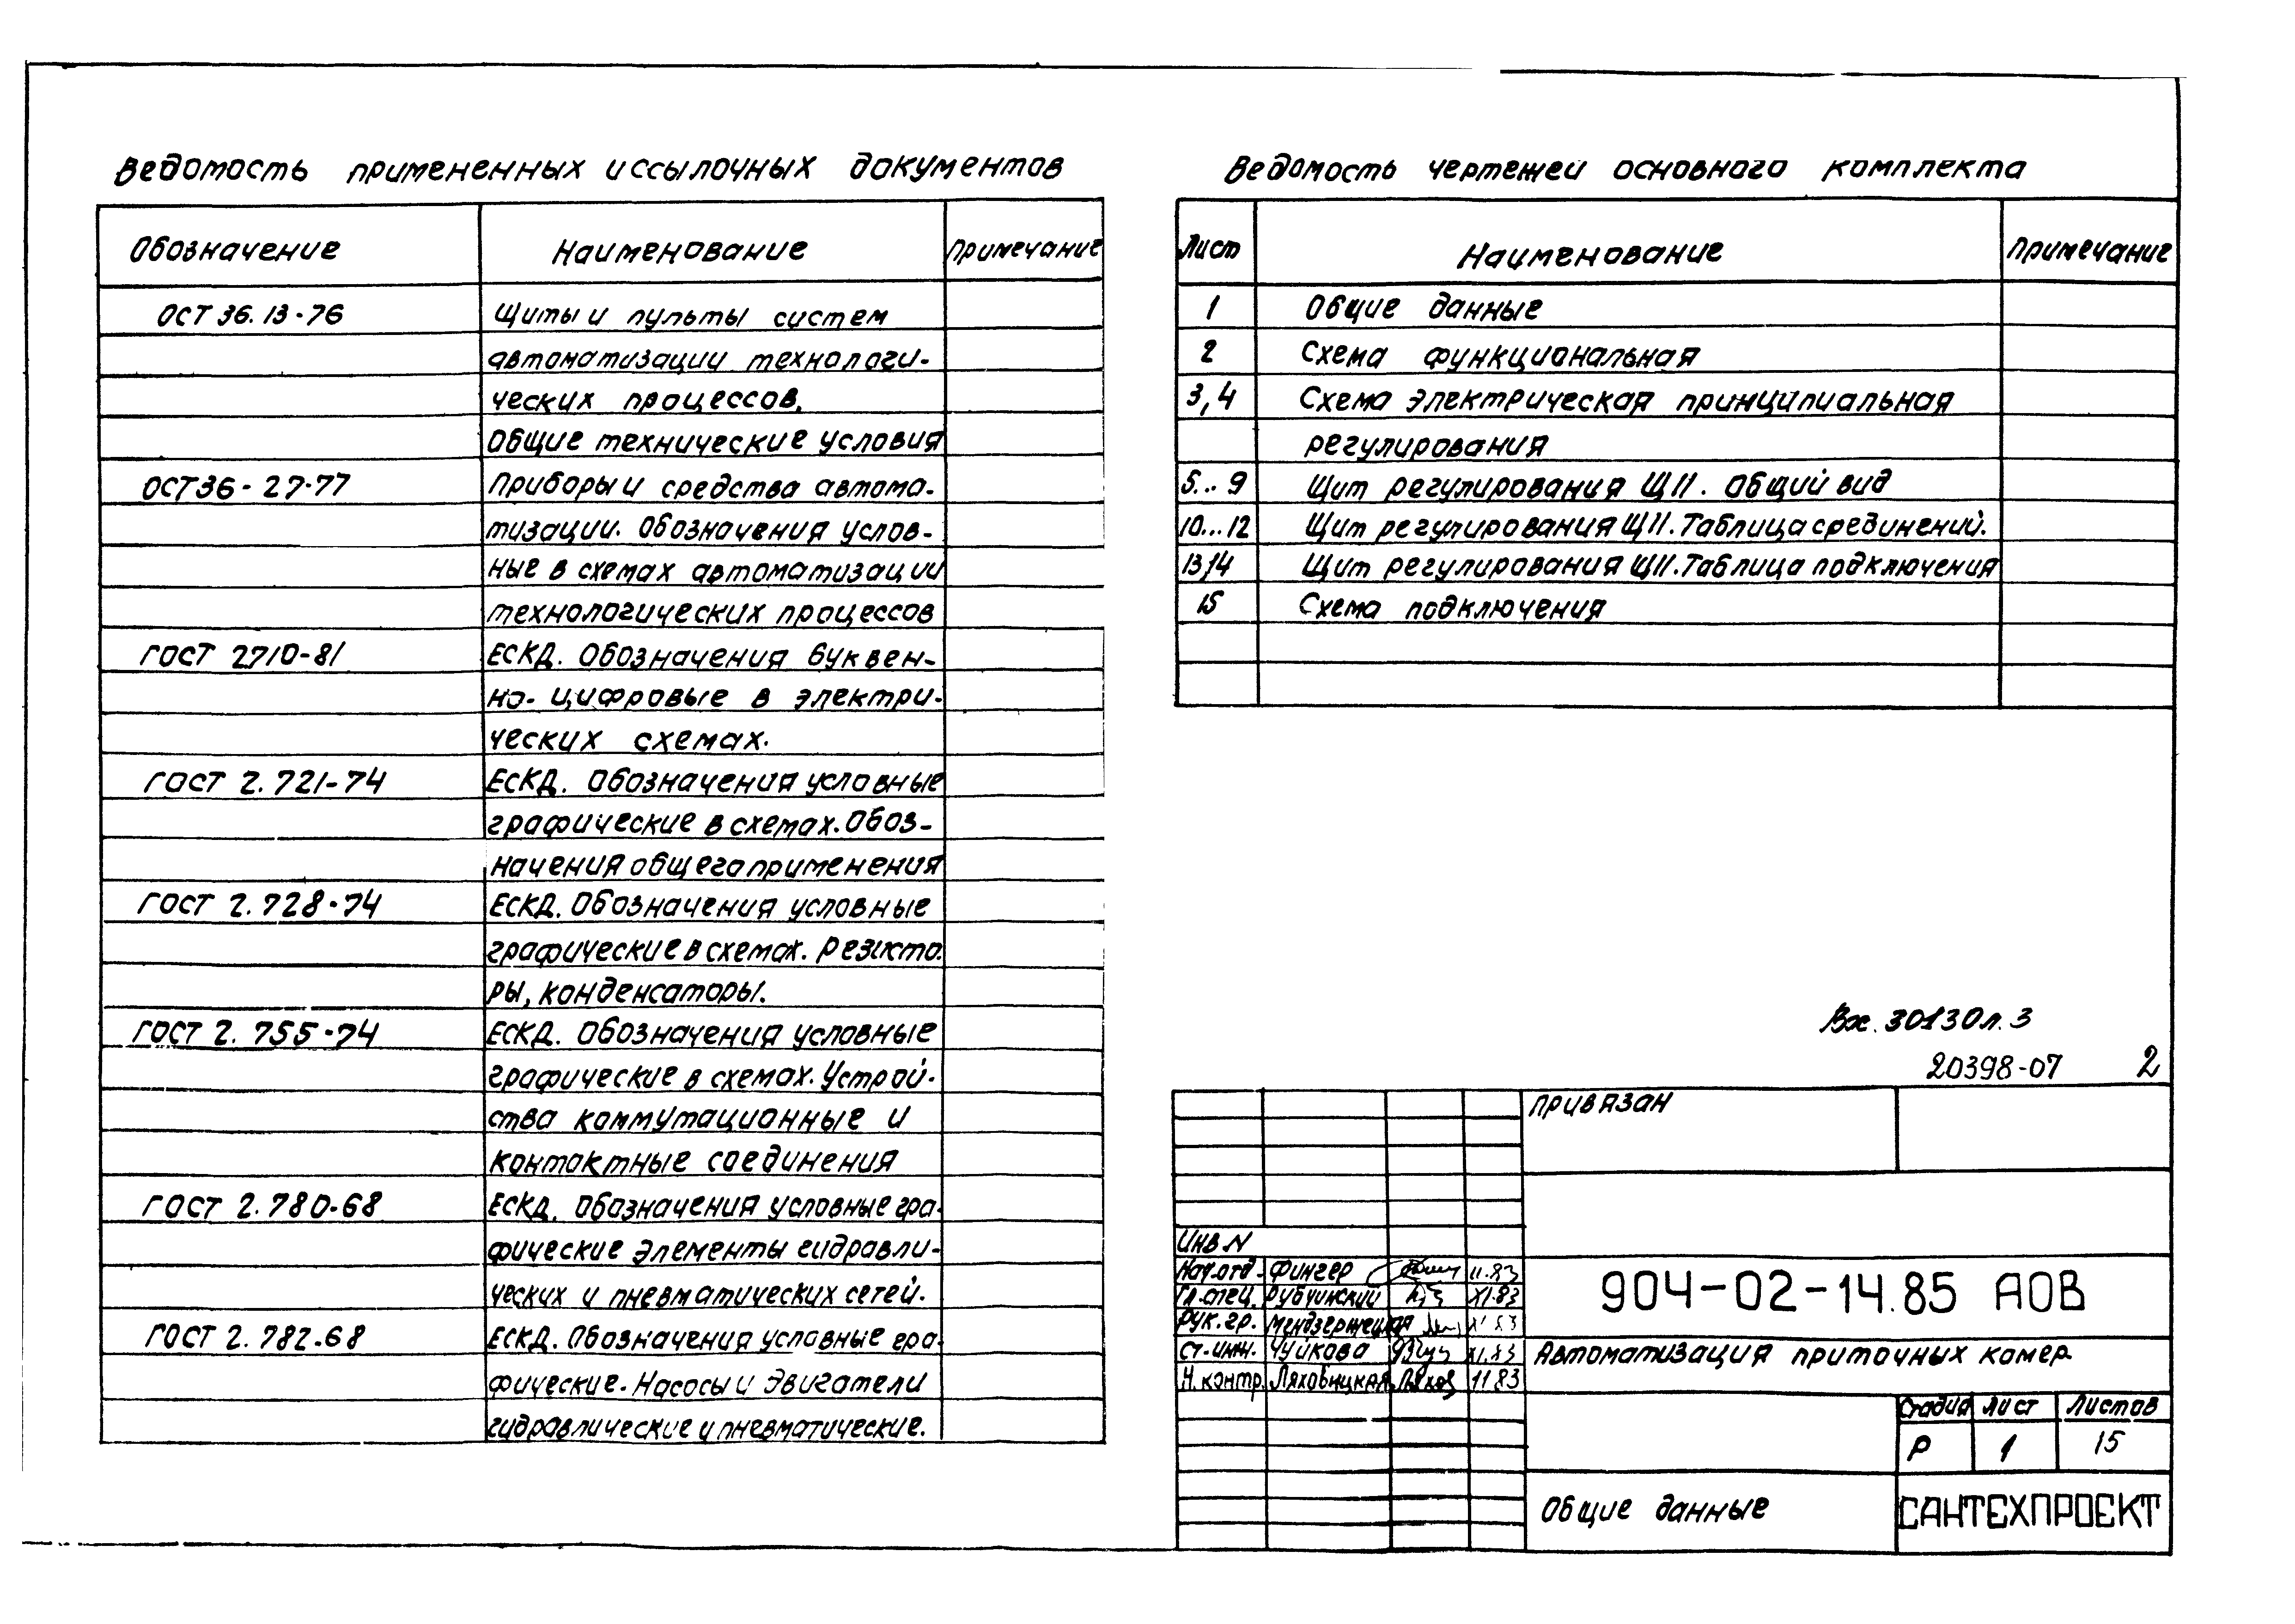 Ведомость примененных и ссылочных документов
Обозначение Наименование Примечание
ОСТ 36.13-76 Щиты и пульты систем
автоматизации технологи-
ческих процессов.
Общие технические условия
ОСТ 36-27-77 Приборы и средства автома-
тизации. Обозначения услов-
ные в схемах автоматизации
технологических процессов
ГОСТ 2710-81 ЕСКД. Обозначения буквен-
но-цифровые в электри-
ческих схемах.
ГОСТ 2.721-74 ЕСКД. Обозначения условные
графические в схемах. Обоз-
начения общего применения
ГОСТ 2.728-74 ЕСКД. Обозначения условные
графические в схемах. Резисто-
ры, конденсаторы.
ГОСТ 2.755-74 ЕСКД. Обозначения условные
графические в схемах. Устрой-
ства коммутационные и
контактные соединения
ГОСТ 2.780-68 ЕСКД. Обозначения условные гра-
фические элементы гидравли-
ческих и пневматических сетей.
ГОСТ 2.782-68 ЕСКД. Обозначения условные гра-
фические. Насосы и двигатели
гидравлические и пневматические.
Ведомость чертежей основного комплекта
Лист Наименование Примечание
1 Общие данные
2 Схема функциональная
3,4 Схема электрическая принципиальная
регулирования
5...9 Щит регулирования Щ11. Общий вид
10...12 Щит регулирования Щ11. Таблица срединений.
13,14 Щит регулирования Щ11. Таблица подключения
15 Схема подключения
30130 л. 3
20398-07 2
Привязан
Инв N
Нач.отд. Фингер 11.83
Гл.спец. Рубчинский XI.83
Рук.гр. Мендзержецкая XI.83
Ст.инж. Чуйкова XI.83
Н.контр. Ляховицкая 11 83
904-02-14.85 АОВ
Автоматизация приточных камер
Стадия Лист Листов
Р 1 15
Общие данные
САНТЕХПРОЕКТ